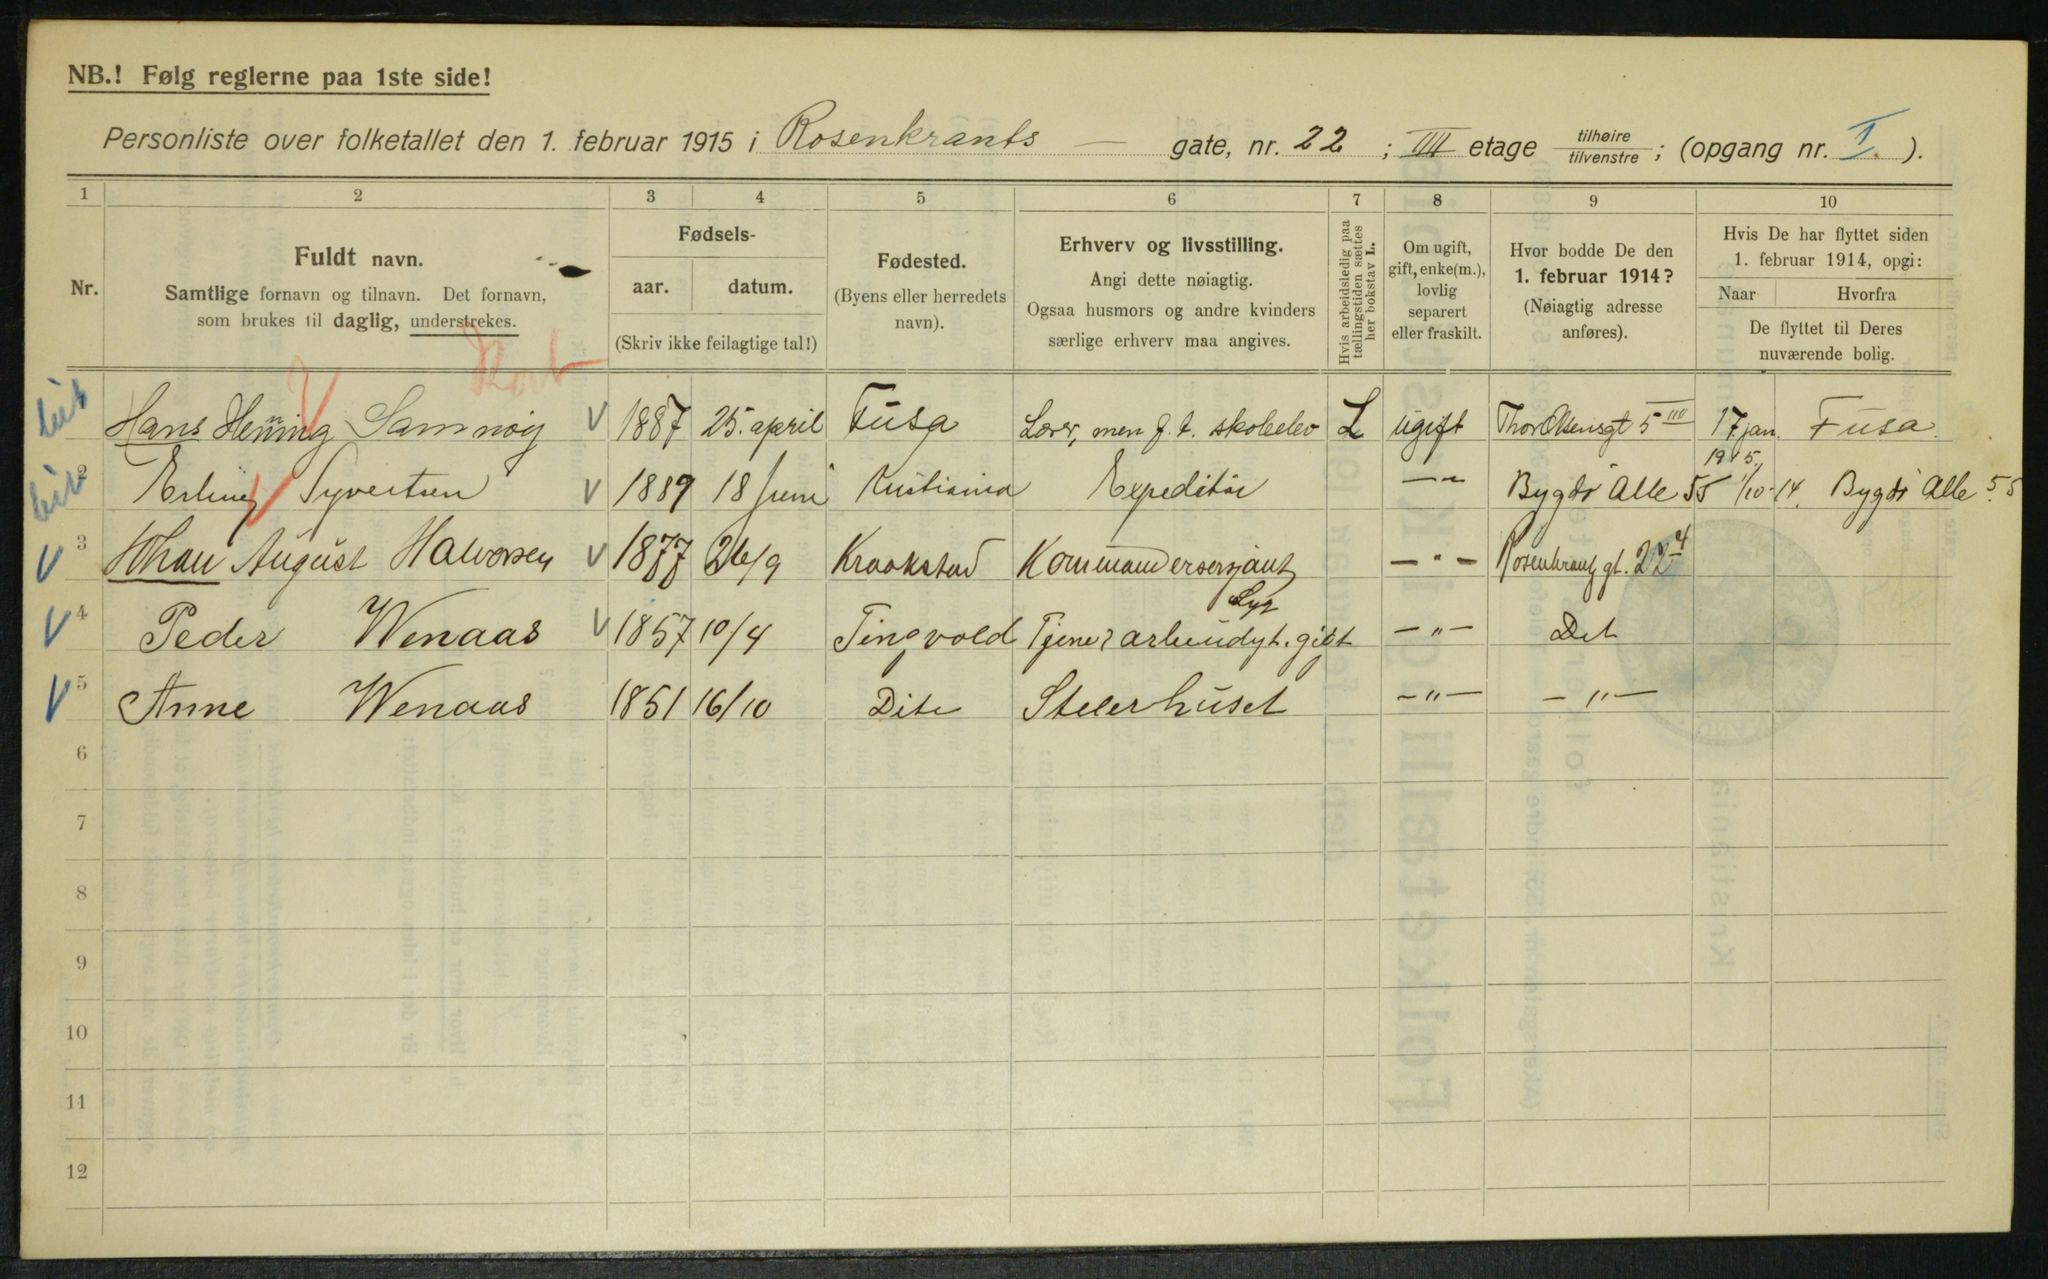 NB.! Følg reglerne paa 1ste side!
Personliste over folketallet den 1. februar 1915 i Rosenkrants — gate, nr. 22 ; IIII etage tilhøire / tilvenstre ; (opgang nr. I. ).
1 2 3 4 5 6 7 8 9 10
Nr.
Fuldt navn.
Samtlige fornavn og tilnavn. Det fornavn,
som brukes til daglig, understrekes.
Fødsels-
aar. datum.
(Skriv ikke feilagtige tal!)
Fødested.
(Byens eller herredets
navn).
Erhverv og livsstilling.
Angi dette nøiagtig.
Ogsaa husmors og andre kvinders
særlige erhverv maa angives.
Hvis arbeidsledig paa
tællingstiden sættes
her bokstav L.
Om ugift,
gift, enke(m.),
lovlig
separert
eller fraskilt.
Hvor bodde De den
1. februar 1914?
(Nøiagtig adresse
anføres).
Hvis De har flyttet siden
1. februar 1914, opgi:
Naar Hvorfra
De flyttet til Deres
nuværende bolig.
Hans Henning Samnøy V 1887 25. april Fusa Lærer, men f. t. skoleelev L ugift Thor Olsensgt 5 IIII 17 jan. 1915. Fusa.
2 Erling Syvertsen V 1889 18 Juni Kristiania Expeditør —"— Bygdö Alle 55 1/10-14. Bygdö Alle 55
3 Johan August Halvorsen V 1877 26/9 Kraakstad Kommandersersjant —"— Rosenkrantzgt. 22 4
4 Peder Wenaas V 1857 10/4 Tingvold Tjener arbeudyt. gift —"— Det
5 Anne Wenaas 1851 16/10 Dito Stelerhuset —"— —"—
6
7
8
9
10
11
12